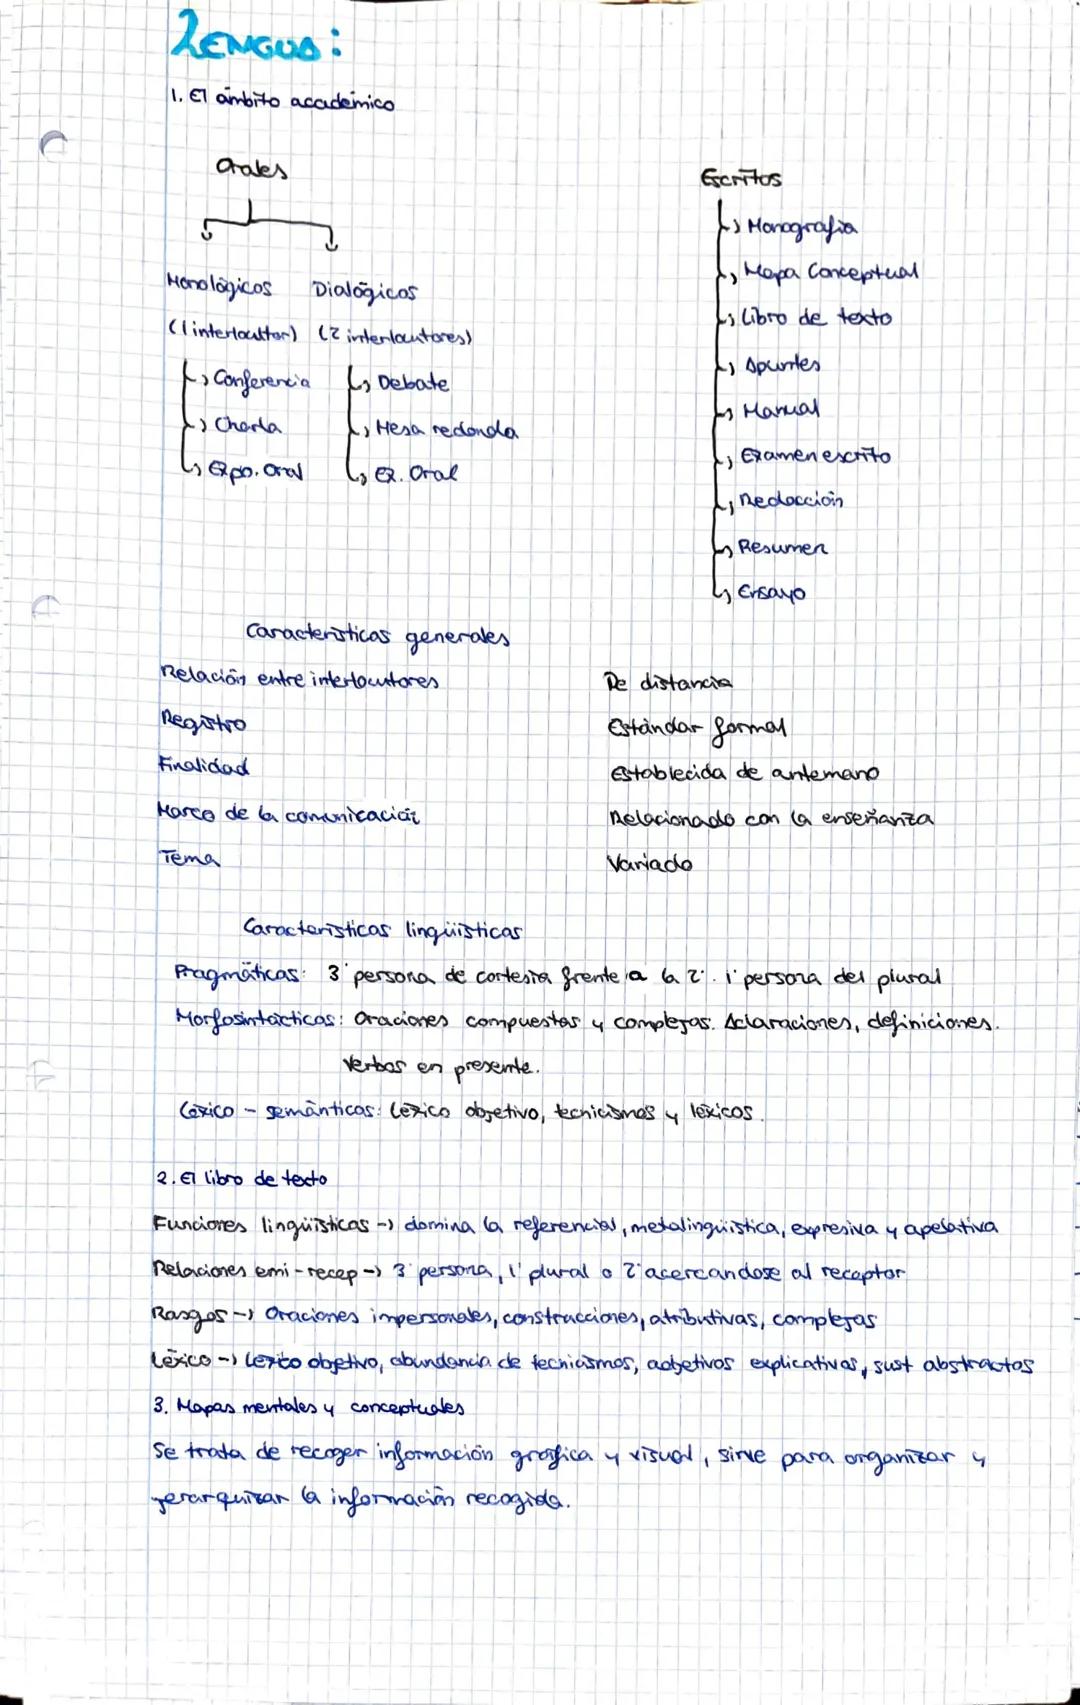 LENGUA:
1. El ámbito académico
Orales
Escritos
Monológicos Dialógicos
(1 interlocultor) (2 interlocutores)
Conferencia
Charla
Expo. Oral
Debate
Mesa redonda
Ex. Oral
Monografía
Mapa Conceptual
Libro de texto
Apuntes
Manual
Examen escrito
Redacción
Resumen
Ensayo
Características generales
Relación entre interlocutores De distancia
Registro Estándar formal
Finalidad Establecida de antemano
Marco de la comunicación Relacionado con la enseñanza
Tema Variado
Características lingüísticas
Pragmáticas: 3ª persona de cortesía frente a la 2ª. 1ª persona del plural
Morfosintácticas: Oraciones compuestas y complejas. Aclaraciones, definiciones.
Verbos en presente.
Léxico - semánticas: Léxico objetivo, tecnicismos y léxicos.
2. El libro de texto
Funciones lingüísticas -> domina la referencial, metalingüística, expresiva y apelativa
Relaciones emi-recep -> 3ª persona, 1ª plural o 2ª acercandose al receptor
Rasgos -> Oraciones impersonales, construcciones, atributivas, complejas
Léxico -> Léxico objetivo, abundancia de tecnicismos, adjetivos explicativos, sust abstractos
3. Mapas mentales y conceptuales
Se trata de recoger información gráfica y visual, sirve para organizar y
jerarquizar la información recogida.